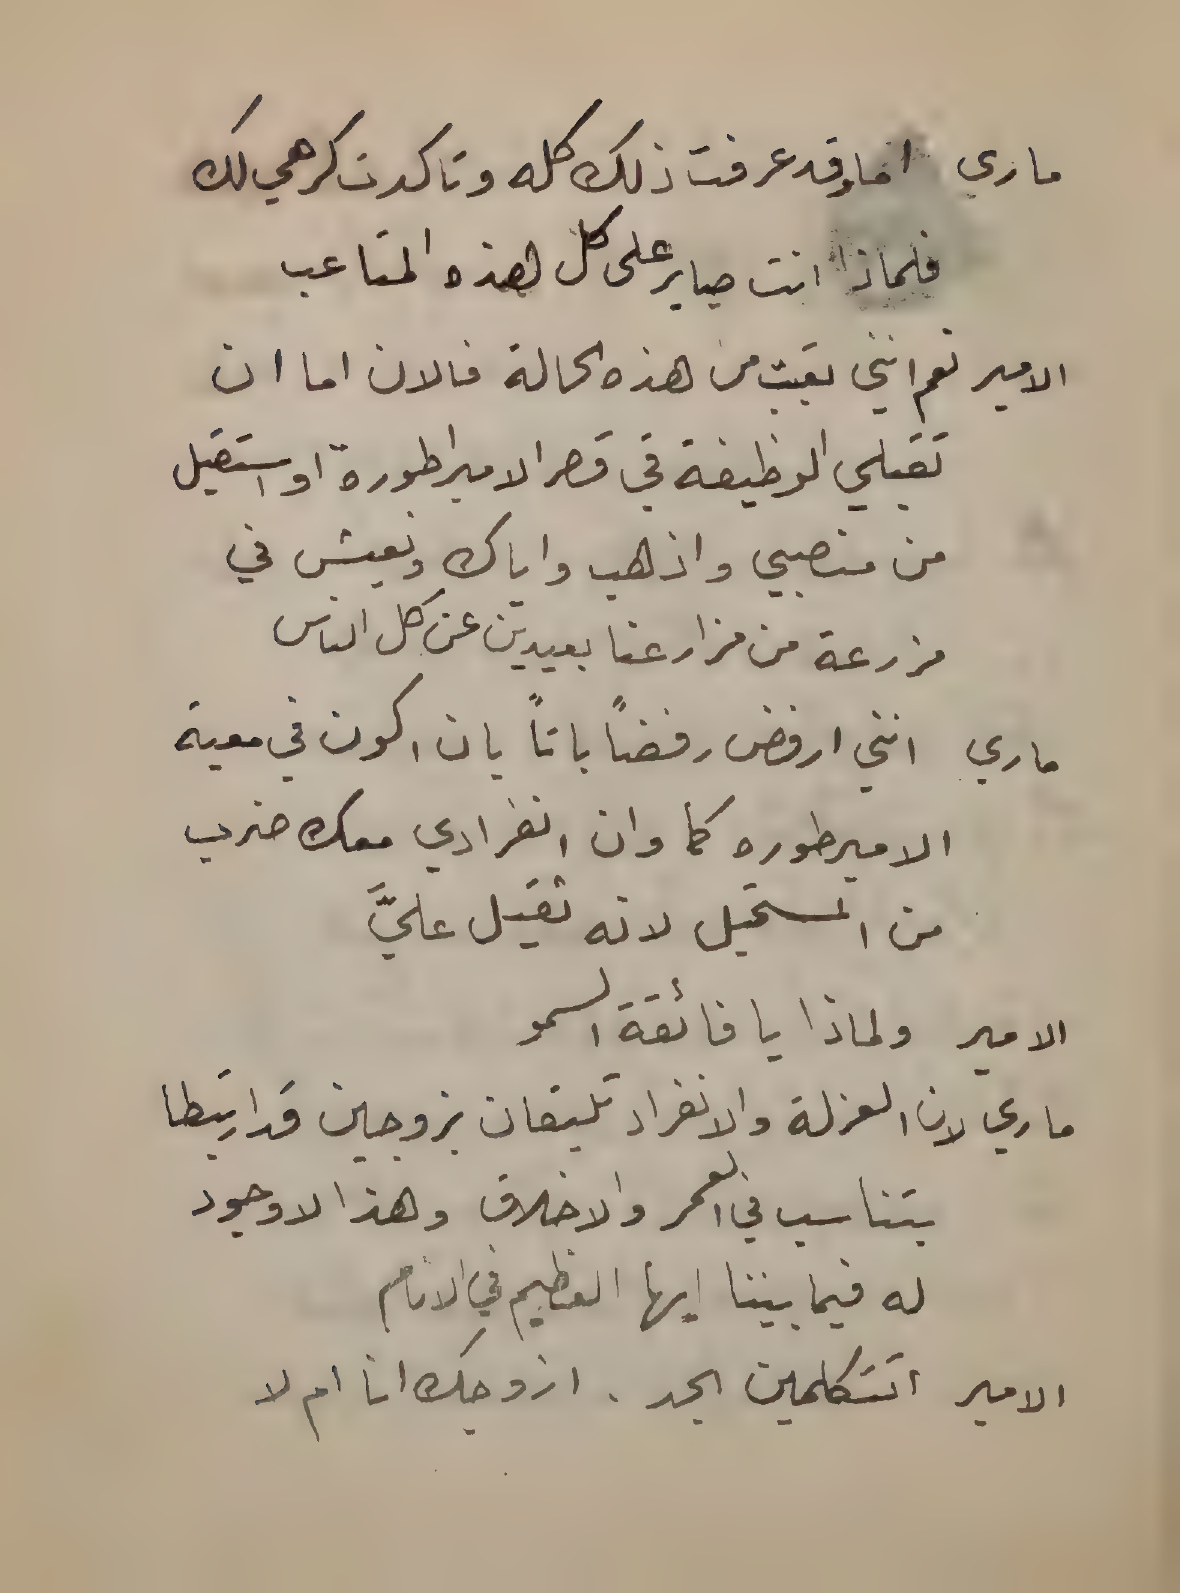 ماري اما وقد عرفت ذلك كله وتاكدت كرهي لك
فلماذا انت صابر على كل هذه المتاعب
الامير نعم انني تعبت من هذه الحالة فالان اما ان
تقبلي الوظيفة في قصر الامبراطورة او استقيل
من منصبي واذهب واياك ونعيش في
مزرعة من مزارعنا بعيدين عن كل الناس
ماري انني ارفض رفضاً باتاً بان اكون في معية
الامبرطوره كما وان انفرادي معك ضرب
من المستحيل لانه ثقيل عليَّ
الامير ولماذا يا فائقة السمو
ماري لان العزلة والانفراد تليقان بزوجين قد ارتبطا
بتناسب في العمر والاخلاق وهذا لا وجود
له فيما بيننا ايها العظيم في الانام
الامير اتتكلمين الجد . ازوجك انا ام لا